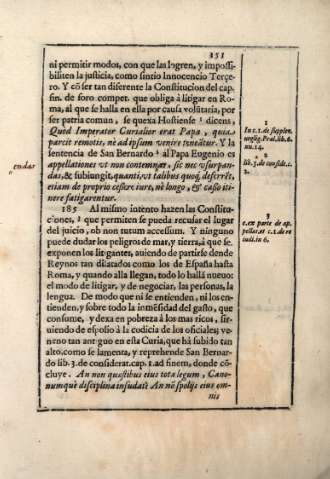 151
ni permitir modos, con que las logren, y impossi-
biliten la justicia, como sintio Innocencio Terce-
ro. Y cõ ser tan diferente la Constitucion del cap.
fin. de foro compet. que obliga à litigar en Ro-
ma, al que se halla en ella por causa volũtaria, por
ser patria comun, se quexa Hostiense ¹ dicens,
Quod Imperator Curialior erat Papa, quia
parcit remotis, nè ad ipsum venire teneãtur. Y la
sentencia de San Bernardo ² al Papa Eugenio es
appellationes vt non contemnat, sic nec vsurpan-
das, & subiungit, quanti, vt talibus quoq; deserrēt,
etiam de proprio cesserc iure, nè longo, & casso iti-
nere fatigarentur.
185 Al mismo intento hazen las Constitu-
ciones, ³ que permiten se pueda recusar el lugar
del juizio, ob non tutum accessum. Y ninguno
puede dudar los peligros de mar, y tierra, à que se
exponen los litigantes, auiendo de partirse dende
Reynos tan dilatados como los de España hasta
Roma, y quando alla llegan, todo lo hallã nueuo:
el modo de litigar, y de negociar, las personas, la
lengua. De modo que ni se entienden, ni los en-
tienden, y sobre todo la inmēsidad del gasto, que
consume, y dexa en pobreza à los mas ricos, sir-
uiendo de espolio à la codicia de los oficiales; ve-
neno tan antiguo en esta Curia, que há subido tan
alto, como se lamenta, y reprehende San Bernar-
do lib. 3. de considerat. cap. 1. ad finem, donde cõ-
cluye. An non quæstibus eius tota legum, Cano-
numquè disciplina insudat? An nõ spolijs eius om-
nis
1
In c. 1. de supplen.
neglig. Præl. lib. 6.
nu. 14.
2
lib. 3. de conside. c.
2.
3
c. ex parte de ap-
pellat. et c. 2. de re
scri. in 6.
endas